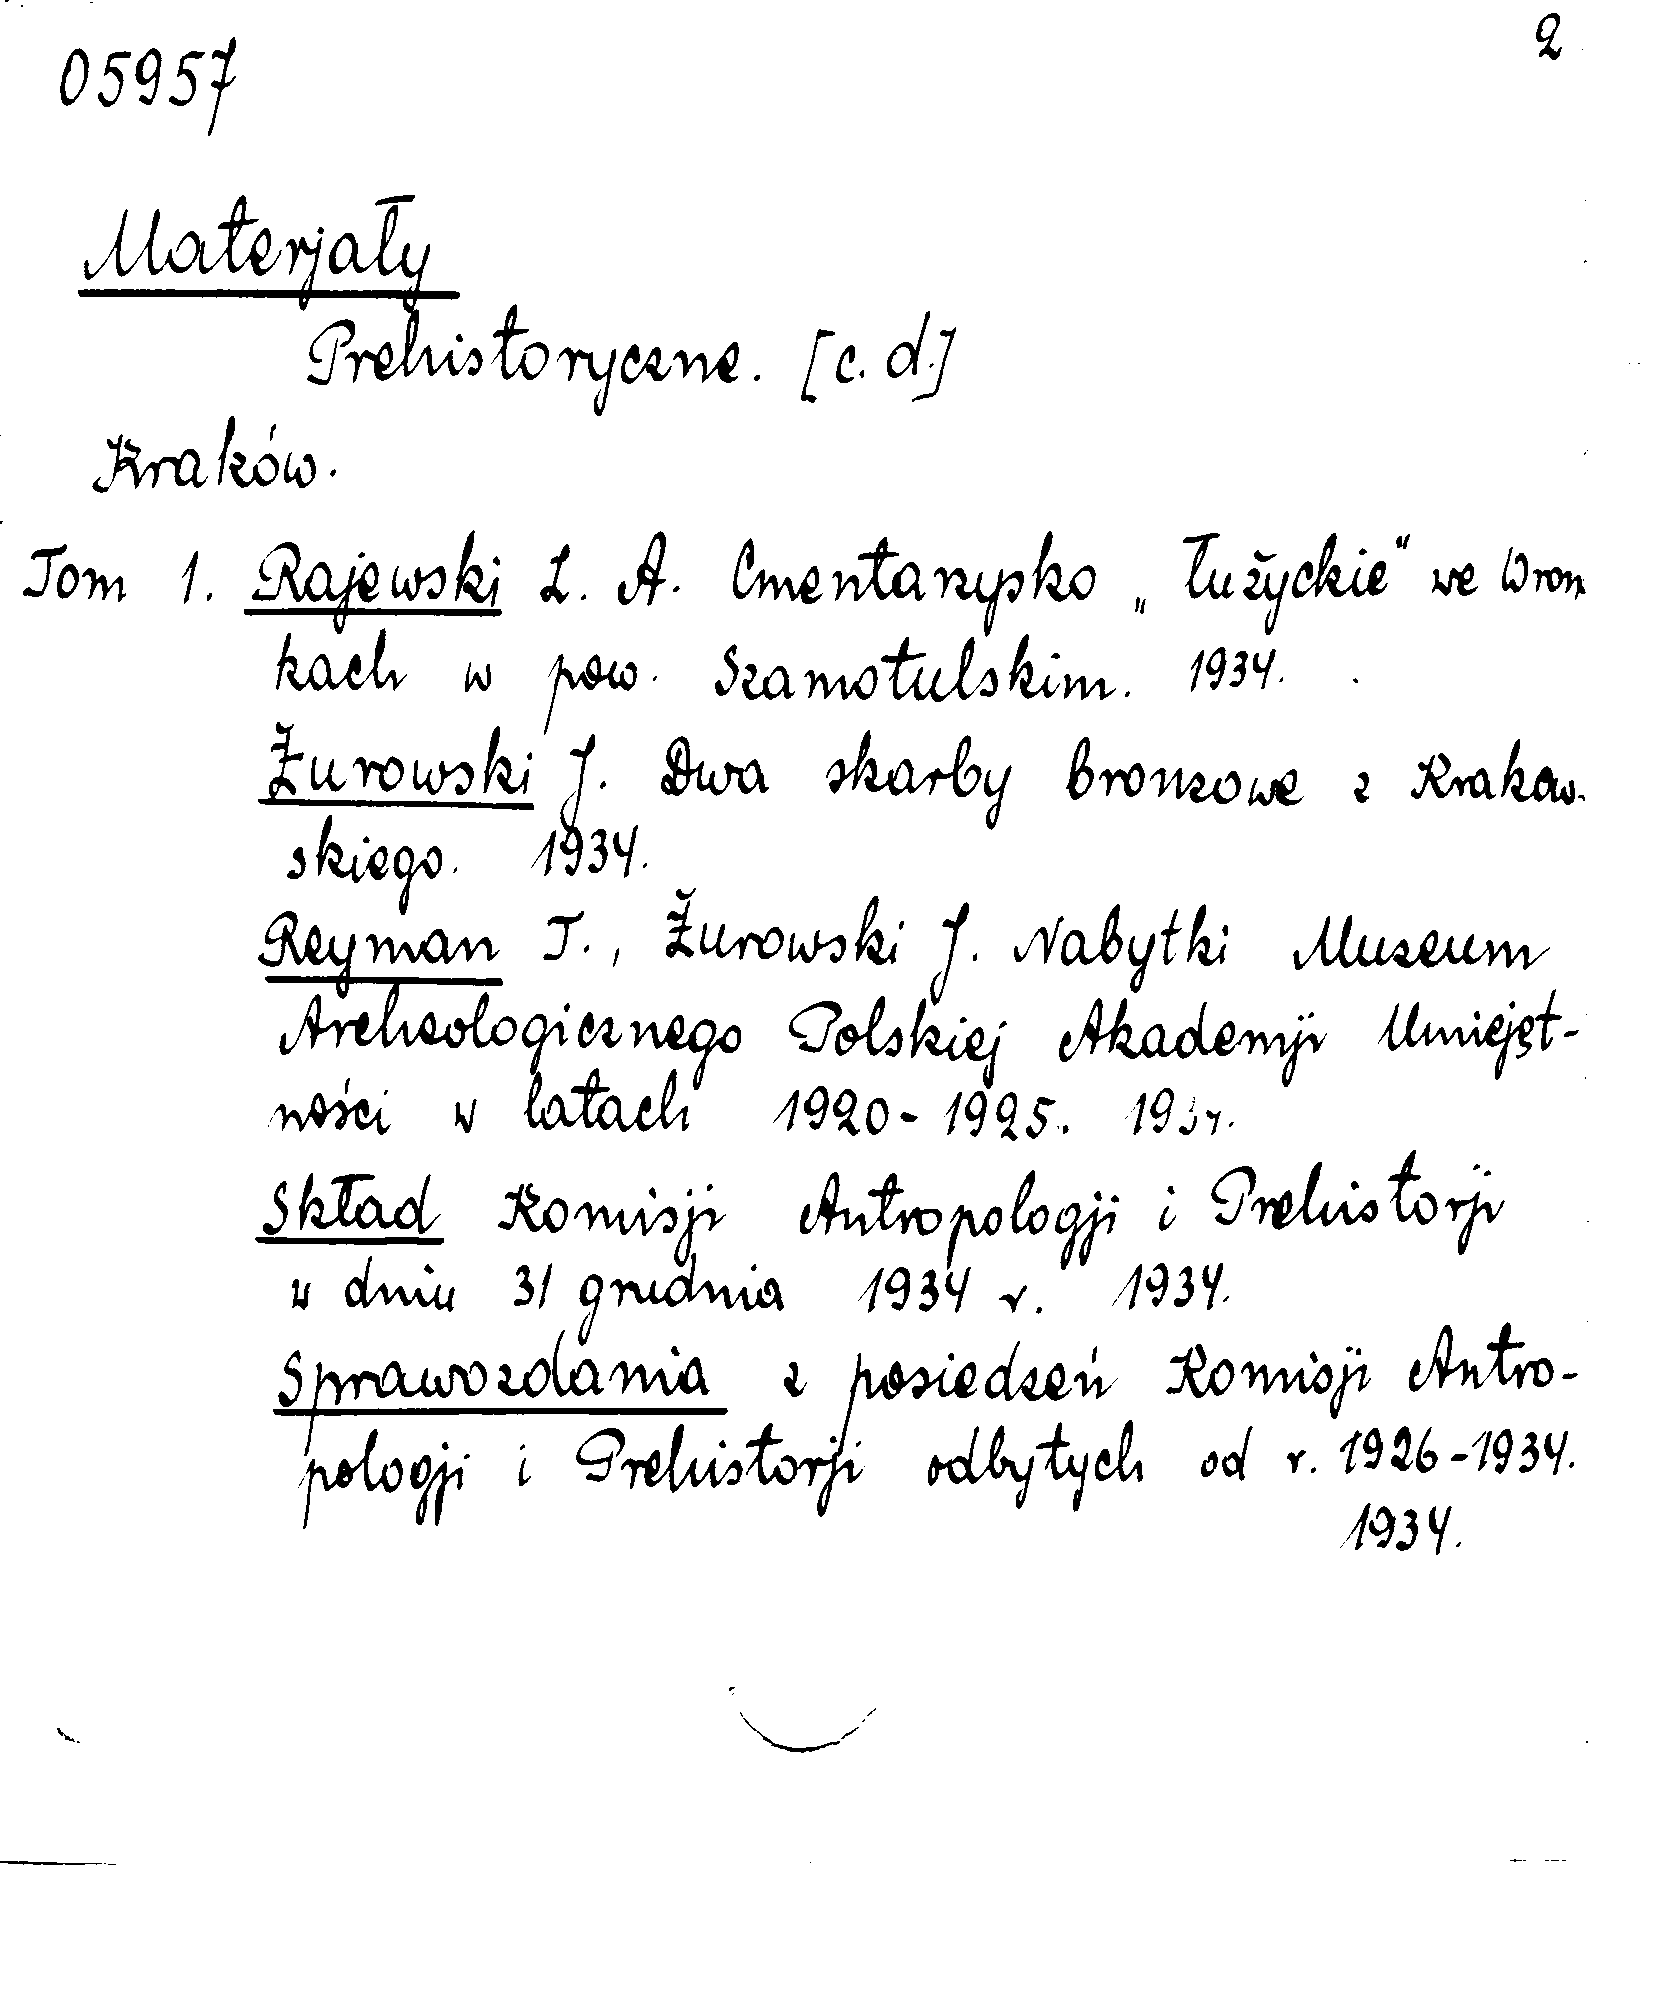 05957
2
Materjały
Prehistoryczne. [c. d.]
Kraków.
Tom 1. Rajewski Z. A. Cmentarzysko „łużyckie" we Wron
kach w pow. Szamotulskim. 1934.
Żurowski J. Dwa skarby bronzowe z Krakow-
skiego. 1934.
Reyman T., Żurowski J. Nabytki Muzeum
Archeologicznego Polskiej Akademji Umiejęt-
ności w latach 1920-1925. 1934.
Skład Komisji Antropologji i Prehistorji
w dniu 31 grudnia 1934 r. 1934.
Sprawozdania z posiedzeń Komisji Antro-
pologji i Prehistorji odbytych od r. 1926-1934.
1934.